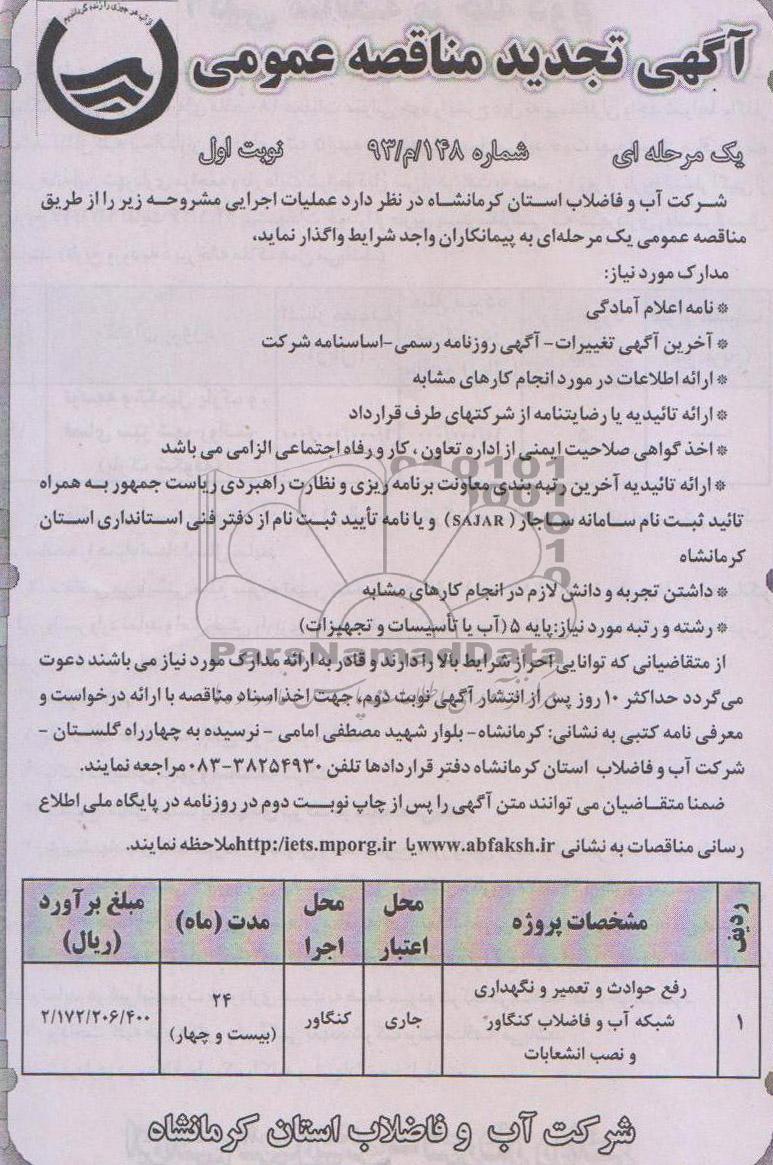 از آب هر چیزی را زنده گردانیم
آگهی تجدید مناقصه عمومی
یک مرحله ای شماره ۹۳/م/۱۴۸ نوبت اول
شرکت آب و فاضلاب استان کرمانشاه در نظر دارد عملیات اجرایی مشروحه زیر را از طریق
مناقصه عمومی یک مرحله‌ای به پیمانکاران واجد شرایط واگذار نماید،
مدارک مورد نیاز:
* نامه اعلام آمادگی
* آخرین آگهی تغییرات- آگهی روزنامه رسمی-اساسنامه شرکت
* ارائه اطلاعات در مورد انجام کارهای مشابه
* ارائه تائیدیه یا رضایتنامه از شرکتهای طرف قرارداد
* اخذ گواهی صلاحیت ایمنی از اداره تعاون ، کار و رفاه اجتماعی الزامی می باشد
* ارائه تائیدیه آخرین رتبه بندی معاونت برنامه ریزی و نظارت راهبردی ریاست جمهور به همراه
تائید ثبت نام سامانه ساجار ( SAJAR ) و یا نامه تأیید ثبت نام از دفتر فنی استانداری استان
کرمانشاه
* داشتن تجربه و دانش لازم در انجام کارهای مشابه
* رشته و رتبه مورد نیاز: پایه ۵ (آب یا تأسیسات و تجهیزات)
ParsNamadData
از متقاضیانی که توانایی احراز شرایط بالا را دارند و قادر به ارائه مدارک مورد نیاز می باشند دعوت
می گردد حداکثر ۱۰ روز پس از انتشار آگهی نوبت دوم، جهت اخذ اسناد مناقصه با ارائه درخواست و
معرفی نامه کتبی به نشانی: کرمانشاه- بلوار شهید مصطفی امامی - نرسیده به چهارراه گلستان -
شرکت آب و فاضلاب استان کرمانشاه دفتر قراردادها تلفن ۳۸۲۵۴۹۳۰-۰۸۳ مراجعه نمایند.
ضمنا متقاضیان می توانند متن آگهی را پس از چاپ نوبت دوم در روزنامه در پایگاه ملی اطلاع
رسانی مناقصات به نشانی www.abfaksh.ir یا http:/iets.mporg.ir ملاحظه نمایند.
ردیف مشخصات پروژه محل اعتبار محل اجرا مدت (ماه) مبلغ برآورد (ریال)
۱ رفع حوادث و تعمیر و نگهداری شبکه آب و فاضلاب کنگاور و نصب انشعابات جاری کنگاور ۲۴ (بیست و چهار) ۲/۱۷۲/۲۰۶/۴۰۰
شرکت آب و فاضلاب استان کرمانشاه